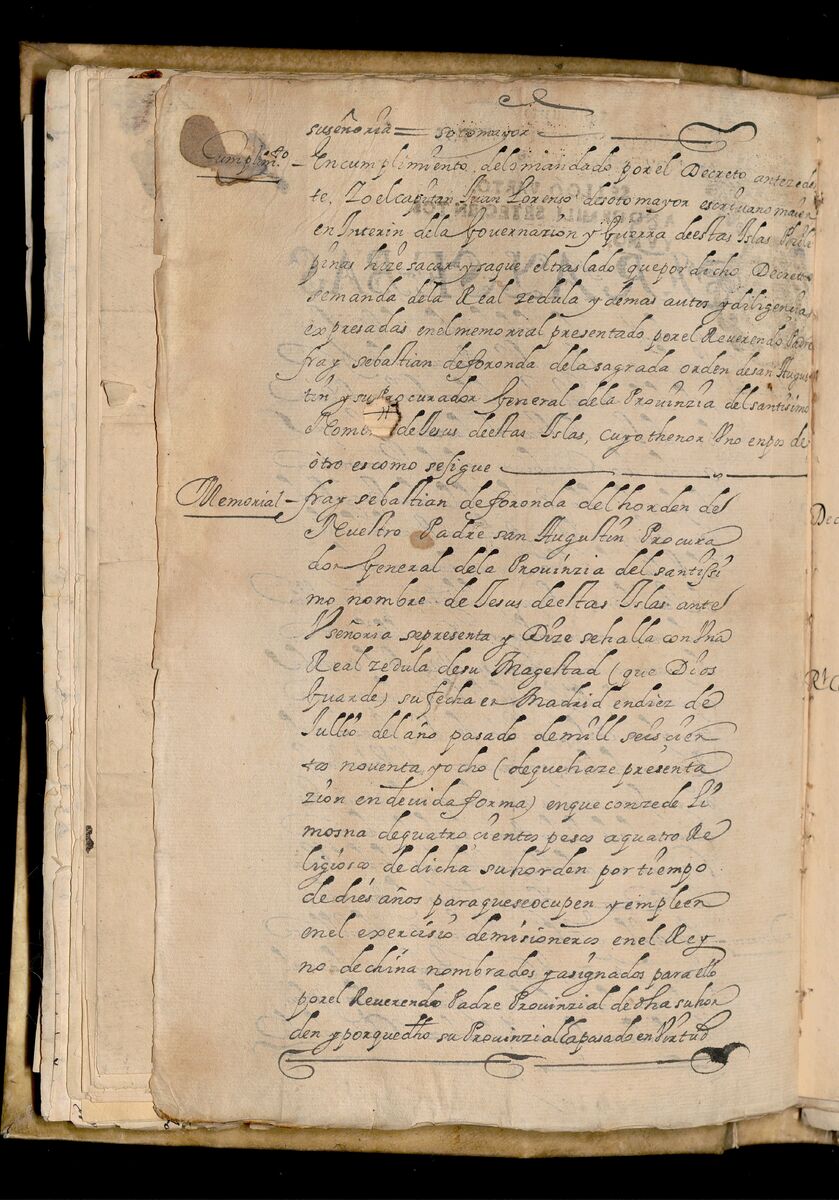 suseñoria = sotomayor
Cumplim.to
En cumplimiento delo mandado por el Decreto antezeden
te, Yo el capitan Juan Lorenso de soto mayor escrivano mayor
en Interin dela Governazion y Guerra deestas Islas Phili
pinas hize sacar y saque el traslado que por dicho Decreto
semanda dela Real zedula y demas autos y diligencias
expresadas en el memorial presentado por el Reverendo Padre
fray sebastian de foronda dela sagrada orden de san Augus
tin y su Procurador General dela Provinzia del santisimo
Nombre de Jesus deestas Islas, cuyo thenor Uno en pos de
otro es como sesigue
Memorial
fray sebastian de foronda del horden de
Nuestro Padre san Augustin Procura
dor General dela Provinzia del santissi
mo nombre de Jesus deestas Islas ante
Vseñoria sepresenta y Dize sehalla con Una
Real zedula desu Magestad (que Dios
Guarde) su fecha en Madrid en diez de
Jullio del año pasado de mill seiscien
tos noventa y ocho (de que haze presenta
zion en devida forma) en que conzede Li
mosna de quatro cientos pesos a quatro Re
ligiosos de dicha su horden por tiempo
de dies años para que se ocupen y empleen
en el exercisio de misioneros en el Rey
no de china nombrados y asignados para ello
por el Reverendo Padre Provinzial de dha su hor
den y porque dho su Provinzial ha pasado en Virtud